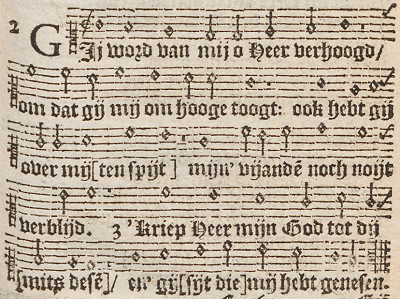 2 Gij word van mij o Heer verhoogd/
om dat gij mij om hooge toogt: ook hebt gij
over mij [ten spijt] mijn' vijandē noch noijt
verblijd. 3 'k riep Heer mijn God tot dij
[mits desē]/ en' gij [sijt die] mij hebt genesen.